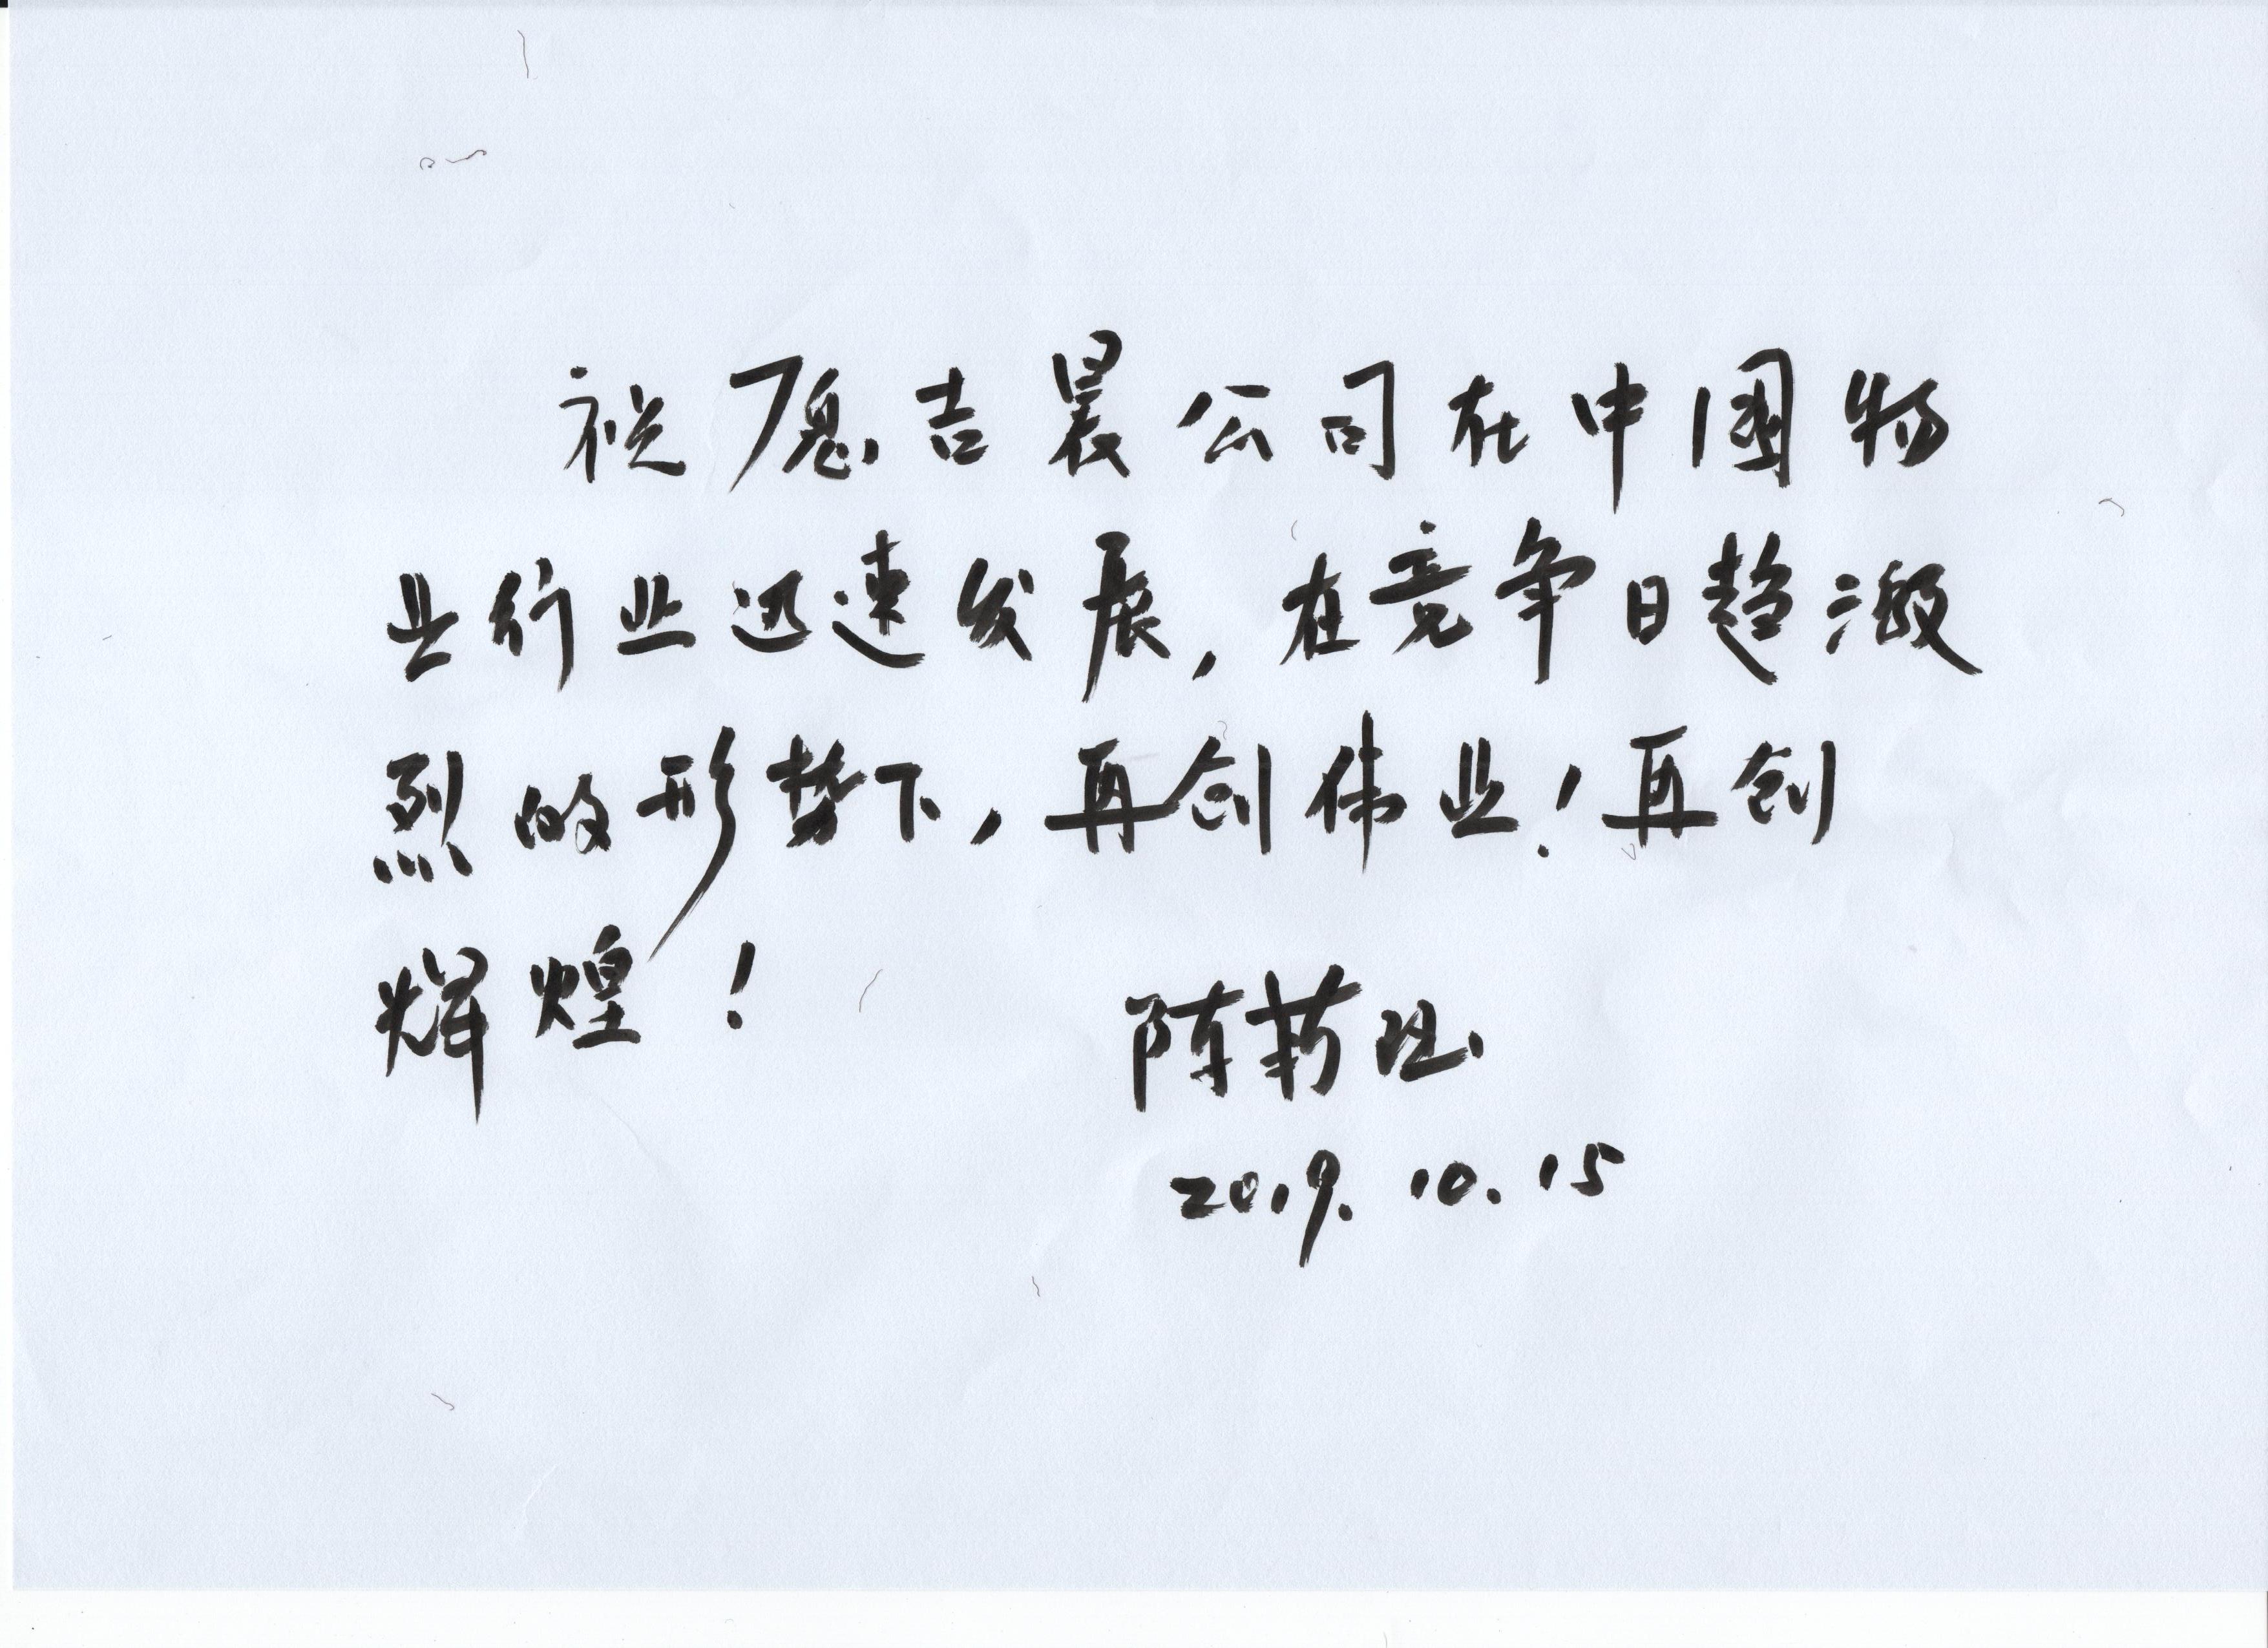 祝愿吉晨公司在中国物
业行业迅速发展,在竞争日趋激
烈的形势下,再创伟业!再创
辉煌!
陈
2019.10.15